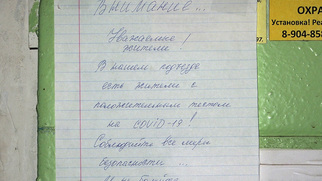 Внимание...
Уважаемые
жители!
В нашем подъезде
есть жители с
положительным тестом
на COVID-19!
Соблюдайте все меры
безопасности...
ОХРА
Установка! Ре
8-904-85